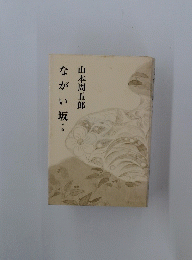 山本周五郎
ながい坂